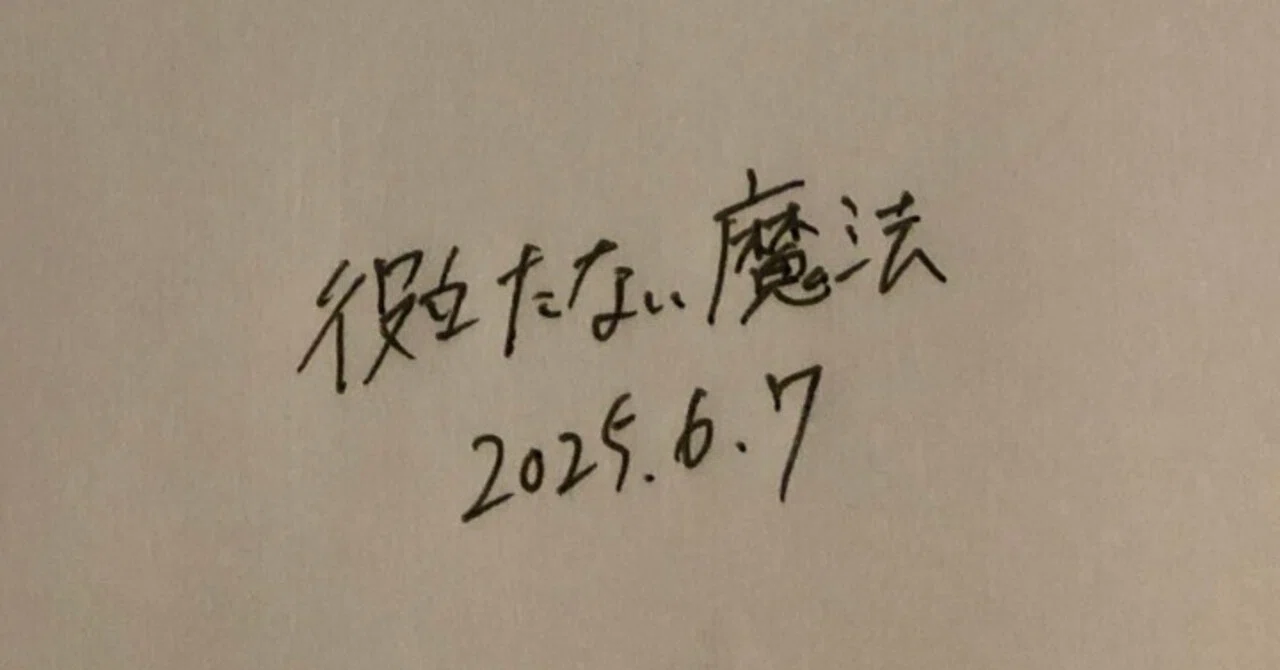 役立たない魔法
2025.6.7